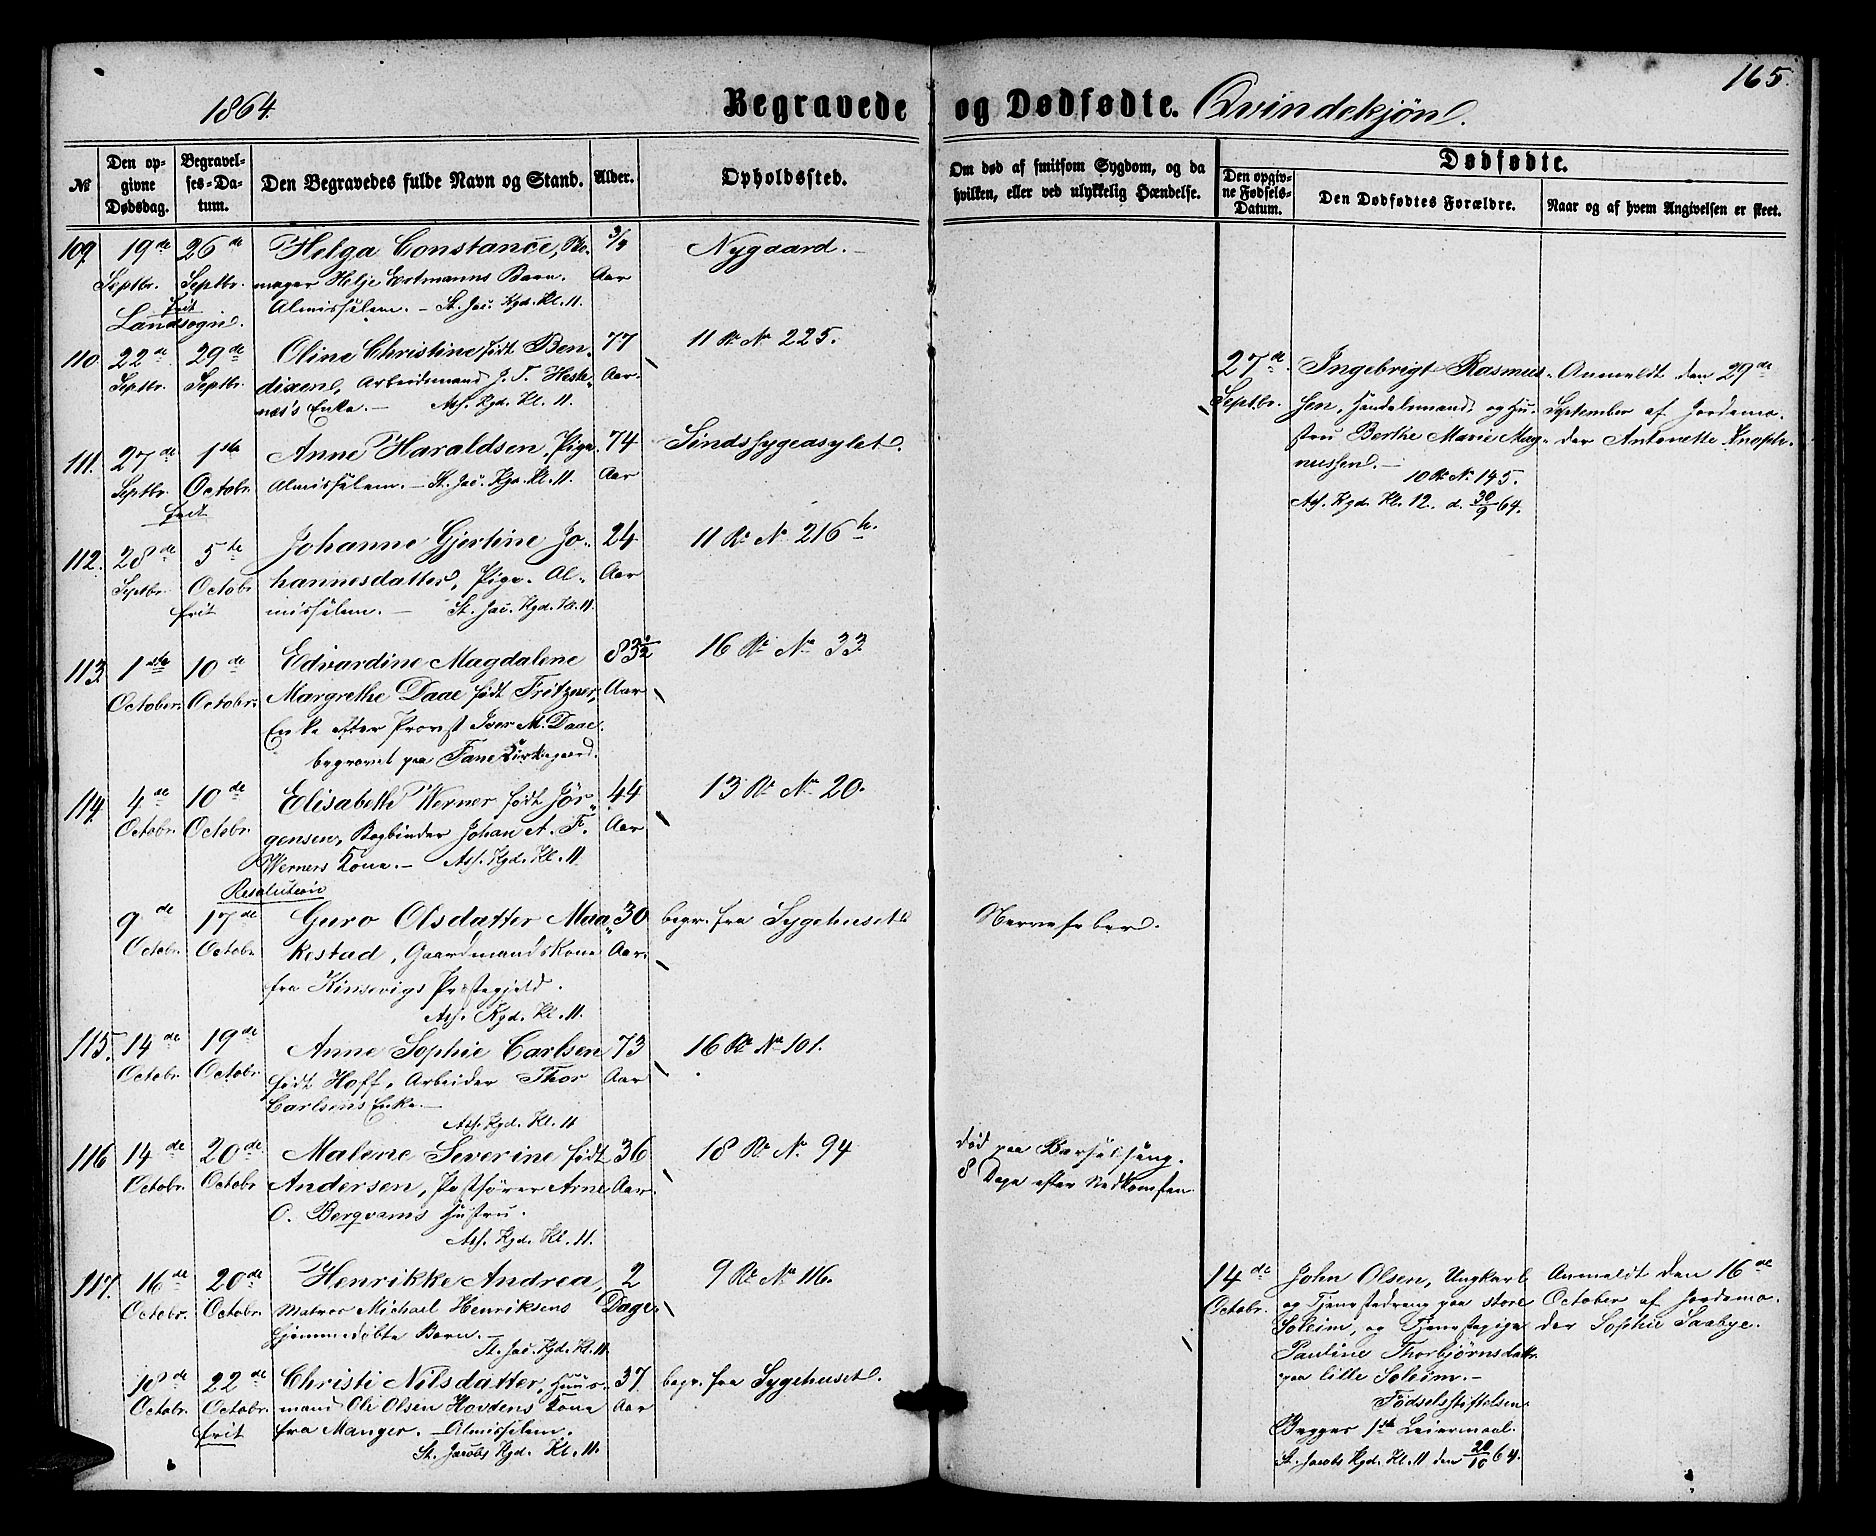 1864.
Begravede og Dødfødte. Qvindekjøn.
165.
№
Den opgivne Dødsdag.
Begravelses-Datum.
Den Begravedes fulde Navn og Stand.
Alder.
Opholdssted.
Om død af smitsom Sygdom, og da hvilken, eller ved ulykkelig Hændelse.
Dødfødte.
Den opgivne Fødsels-Datum.
Den Dødfødtes Forældre.
Naar og af hvem Angivelsen er skeet.
109. 19de 26de Helga Constance, 3/4 Nygaard.
Septbr. Septbr. mager Helje Ertmanns Barn. Aar
frit Almisselem. – St. Jac. Kgd. Kl. 11.
Landsogn.
110 22de 29de Oline Christine født Ben- 77 11 R. No 225.
Septbr. Septbr. dixen, Arbeidsmand J. T. Heste- Aar
næs's Enke. – Ass. Kgd. Kl. 11.
111. 27de 1ste Anne Haraldsen, Pige. 74 Sindssygeasylet.
Septbr. Octobr. Almisselem. – St. Jac. Kgd. Kl. 11. Aar
frit
112. 28de 5te Johanne Gjertine Jo- 24 11 R. No 216 b.
Septbr. Octobr. hannesdatter, Pige. Al- Aar
frit misselem. – St. Jac. Kgd. Kl. 11.
113. 1ste 10de Edvardine Magdalene 83 1/2 16 R. No 33.
October. Octobr. Margrethe Daae født Fritzner, Aar
Enke efter Provst Iver M. Daae.
begravet paa Fane Kirkegaard.
114. 4de 10de Elisabeth Werner født Jør- 44 13 R. No 20.
Octobr. Octobr. gensen, Bogbinder Johan A. F. Aar
Werners Kone. – Ass. Kgd. Kl. 11
Resolution
9de 17de Guro Olsdatter Maa- 30 begr. fra Sygehuset. Nervefeber.
Octobr. Octobr. kestad, Gaardmandskone Aar.
fra Kinservigs Præstegjeld.
Ass. Kgd. Kl. 11.
115. 14de 19de Anne Sophie Carlsen 73 16 R. No 101.
Octobr. Octobr. født Hoff, Arbeider Thor Aar
Carlsens Enke. –
Ass. Kgd. Kl. 11
116 14de 20de Malene Severine født 36 18 R. No. 94 død paa Barselseng.
Octobr. Octobr. Andersen, Postfører Arne Aar. 8 Dage efter Nedkomsten
O. Bergvams Hustru.
Ass. Kgd. Kl. 11.
117. 16de 20de Henrikke Andrea, 2 9 R. No 116.
Octobr. Octobr. Matros Michael Henriksens Dage.
hjemmedøbte Barn. –
St. Jac. Kgd. Kl. 11
18de 22de Christi Nilsdatter, Huus- 37 begr. fra Sygehuset.
Octobr. Octobr. mand Ole Olsen Havdens Kone Aar
frit fra Manger. – Almisselem.
St. Jacobs Kgd. Kl. 11.
27de Ingebrigt Rasmus- Anmeldt den 29de
Septbr. sen, Handelsmand, og Hu- September af Jordemo-
stru Berthe Marie Mag- der Antonette Knoph.
nussen. –
10 R. No. 145.
Ass. Kgd. Kl. 12. d. 30/9 64.
14de John Olsen, Ungkarl Anmeldt den 16de
Octobr. og Tjenestedreng paa store October af Jordemo-
Soleim, og Tjenestepige der Sophie Saabye.
Pauline Thorbjørnsdattr.
paa lille Soleim. –
Fødselsstiftelsen.
Begges 1ste Leiermaal.
St. Jacobs Kgd. Kl. 11 den 20/10 64.